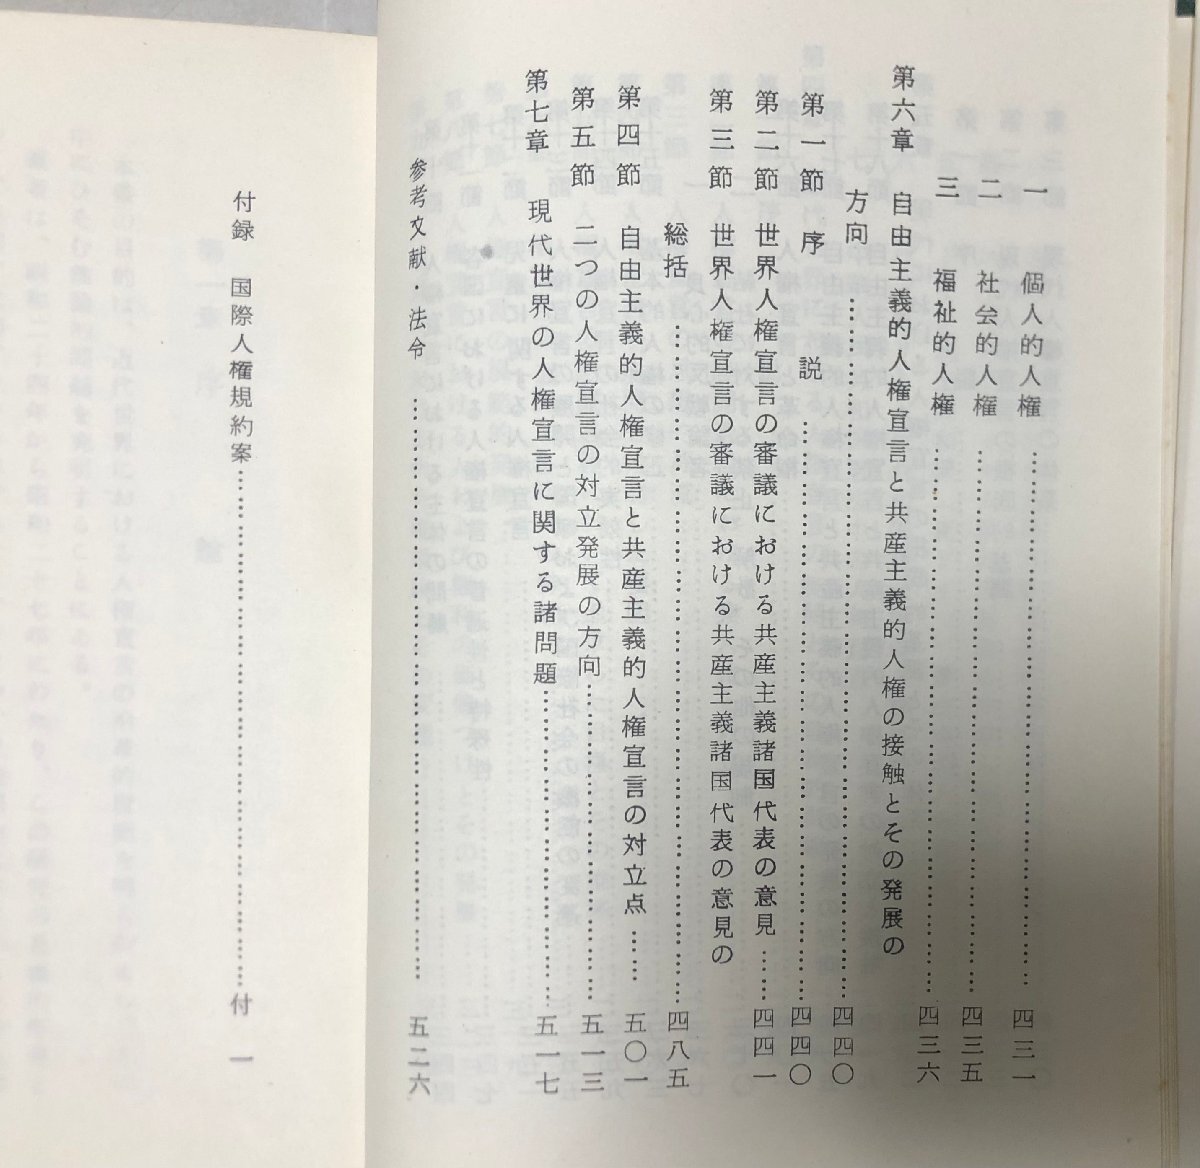 一 個人的人権……四三一
二 社会的人権……四三五
三 福祉的人権……四三六
第六章 自由主義的人権宣言と共産主義的人権の接触とその発展の
方向……四四〇
第一節 序 説……四四〇
第二節 世界人権宣言の審議における共産主義諸国代表の意見……四四一
第三節 世界人権宣言の審議における共産主義諸国代表の意見の
総括……四八五
第四節 自由主義的人権宣言と共産主義的人権宣言の対立点……五〇一
第五節 二つの人権宣言の対立発展の方向……五一三
第七章 現代世界の人権宣言に関する諸問題……五一七
参考文献・法令……五二六
付録 国際人権規約案……付 一